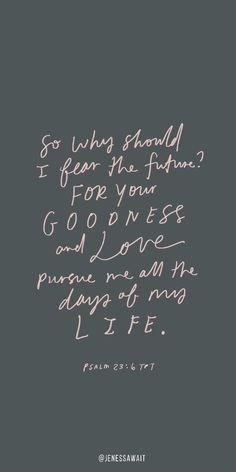 So why should
I fear the future?
FOR YOUR
GOODNESS
and Love
pursue me all the
days of my
LIFE.
PSALM 23:6 TPT
@JENESSAWAIT